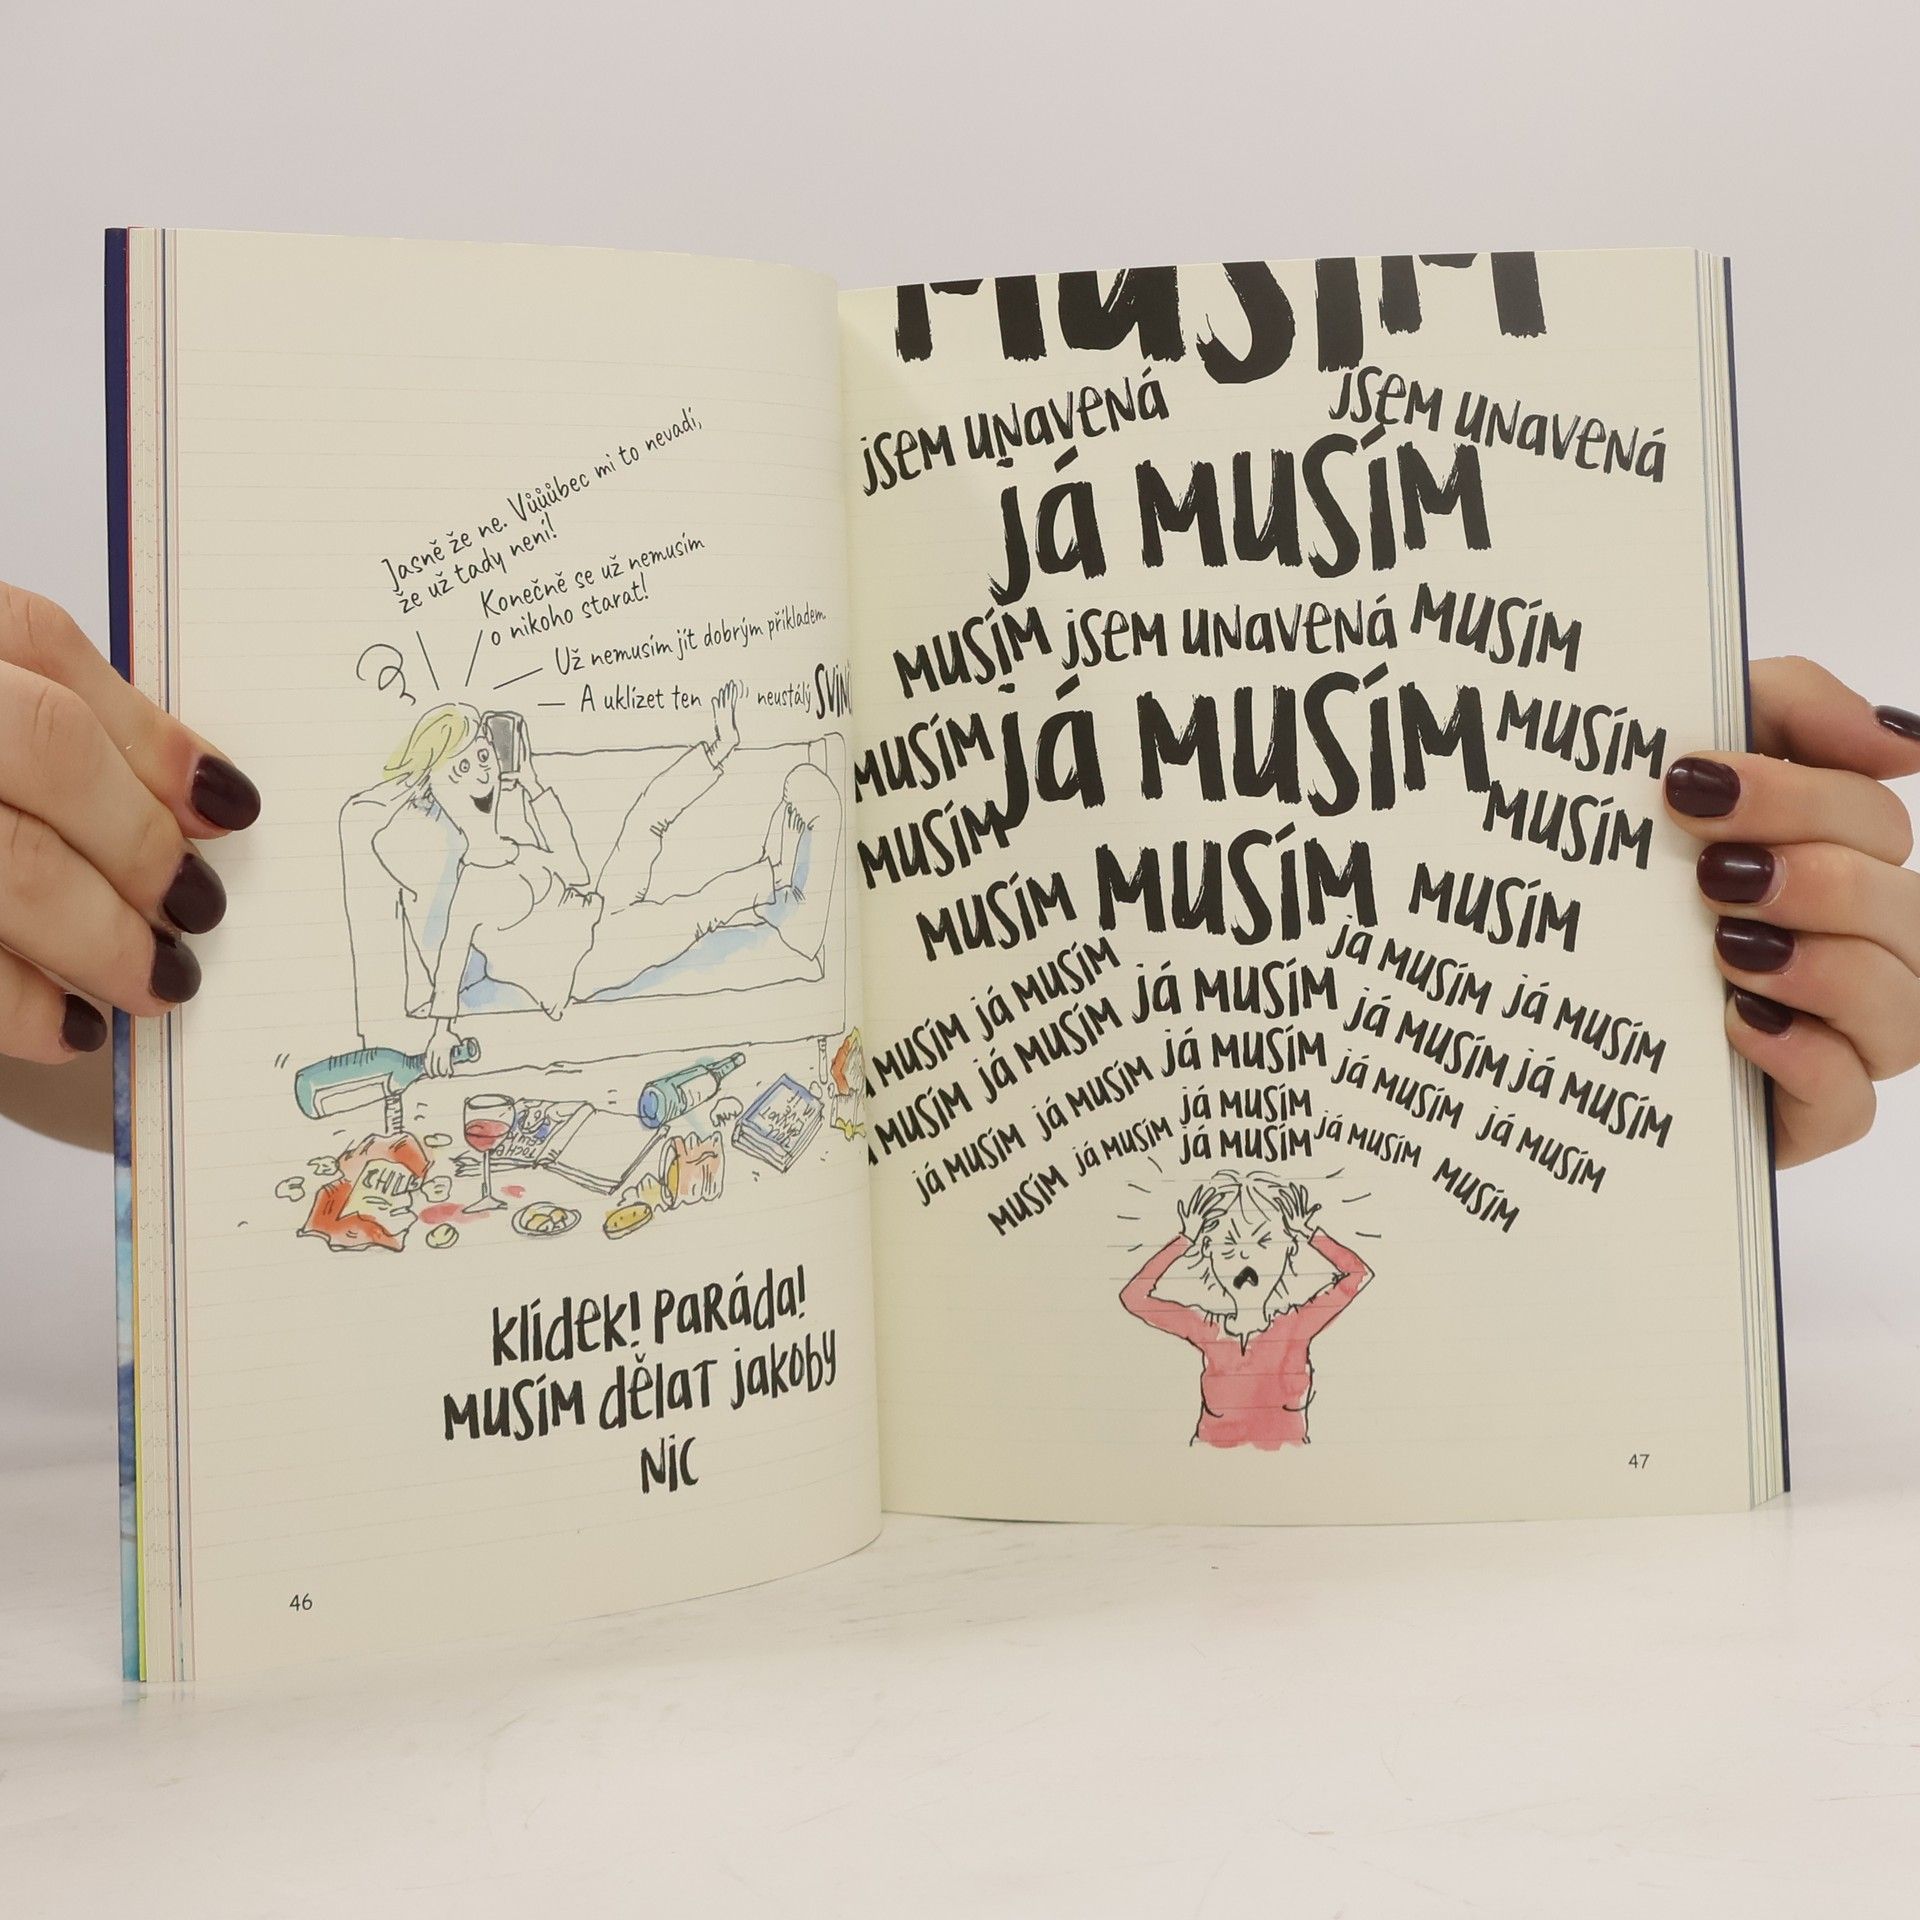 Jasně že ne. Vůůůbec mi to nevadí,
že už tady není!
Konečně se už nemusím
o nikoho starat!
Už nemusím jít dobrým příkladem.
A uklízet ten neustálý
CHIPS
klídek! Paráda!
Musím dělat jakoby
nic
46
Musím
jsem unavená jsem unavená
já musím
musím jsem unavená musím
musím já musím musím
musím musím
musím musím musím
já musím já musím
musím já musím já musím
já musím já musím
musím já musím
já musím já musím
já musím já musím já musím
já musím já musím
já musím
musím já musím já musím já musím musím
47